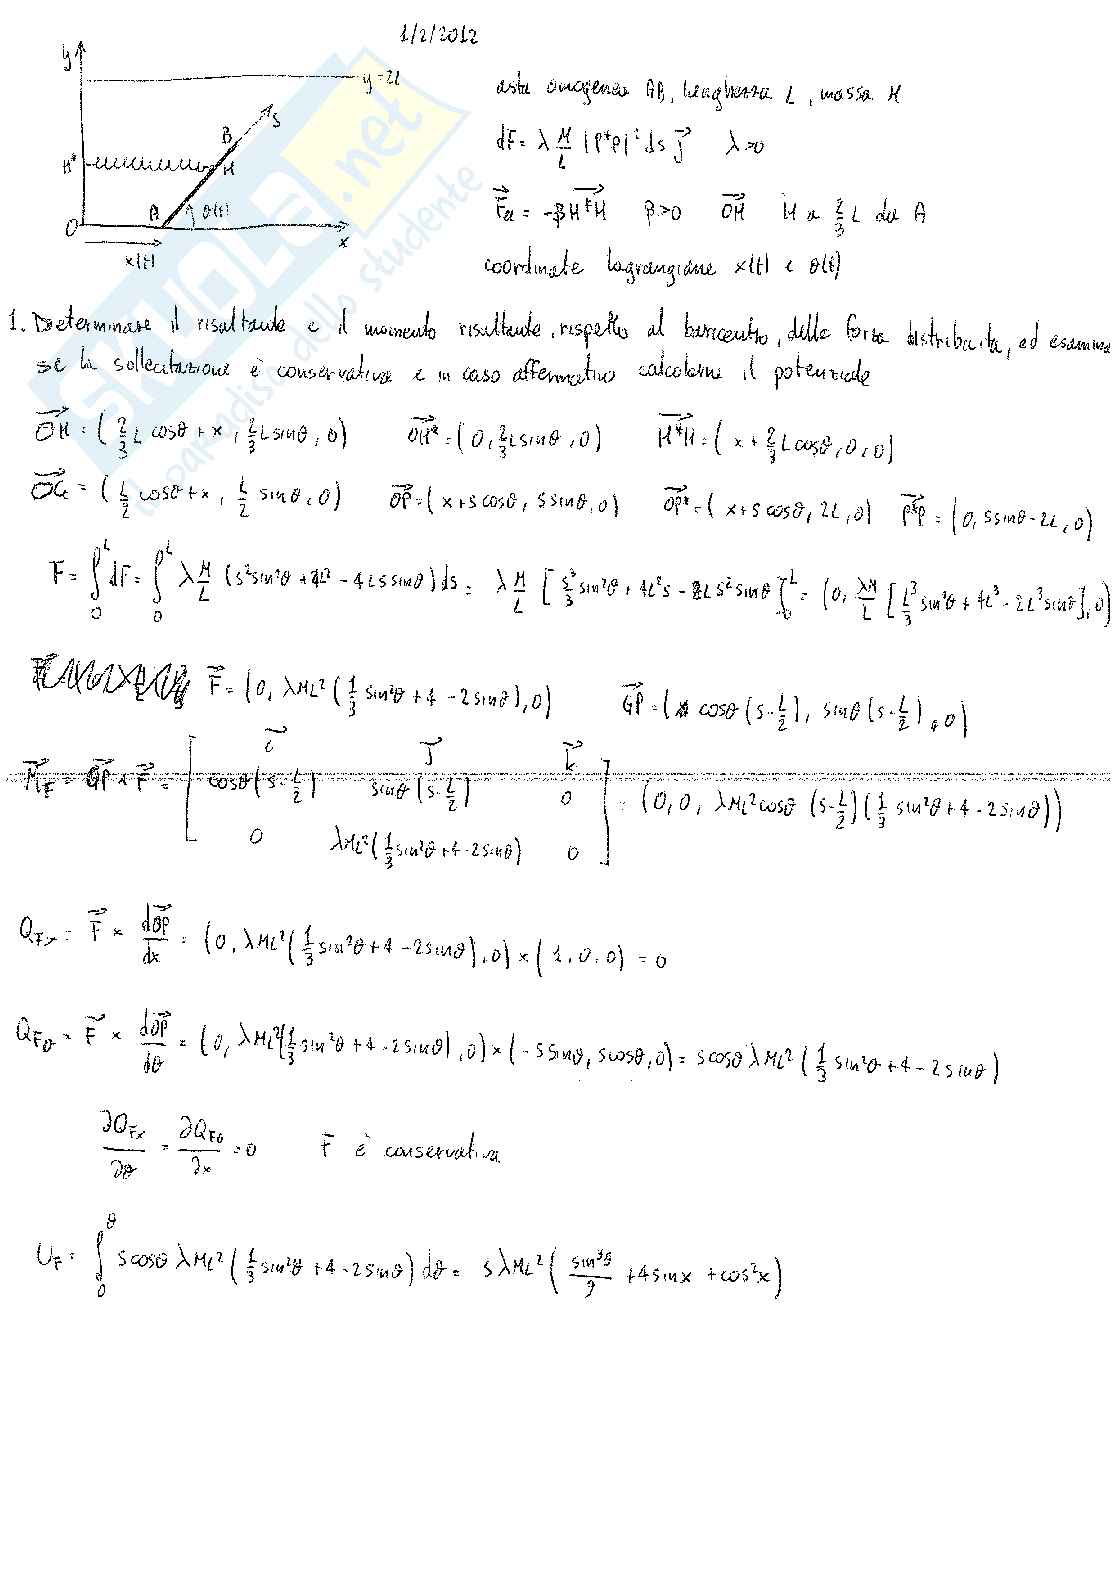 1/2/2012
y
y=2L
S
B
H*
H
A
θ(t)
O
x
x(t)
asta omogenea AB, lunghezza L, massa M
dF = λ M/L |P*P|² ds j⃗   λ>0
F⃗a = -β H*H⃗   β>0   OH⃗   H a 2/3 L da A
coordinate lagrangiane x(t) e θ(t)
1. Determinare il risultante e il momento risultante, rispetto al baricentro, della forza distribuita, ed esaminare
se la sollecitazione è conservativa e in caso affermativo calcolarne il potenziale
OH⃗ = (2/3 L cosθ + x, 2/3 L sinθ, 0)   OH*⃗ = (0, 2/3 L sinθ, 0)   H*H⃗ = (x + 2/3 L cosθ, 0, 0)
OG⃗ = (L/2 cosθ + x, L/2 sinθ, 0)   OP⃗ = (x + s cosθ, s sinθ, 0)   OP*⃗ = (x + s cosθ, 2L, 0)   P*P⃗ = (0, s sinθ - 2L, 0)
F = ∫₀ᴸ dF = ∫₀ᴸ λ M/L (s² sin²θ + 4L² - 4L s sinθ) ds = λ M/L [s³/3 sin²θ + 4L² s - 2L s² sinθ]₀ᴸ = (0, λM/L [L³/3 sin²θ + 4L³ - 2L³ sinθ], 0)
F⃗ = (0, λML² (1/3 sin²θ + 4 - 2 sinθ), 0)   GP⃗ = (cosθ (s - L/2), sinθ (s - L/2), 0)
M⃗F = GP⃗ × F⃗ = [i⃗ j⃗ k⃗
cosθ (s - L/2) sinθ (s - L/2) 0
0 λML² (1/3 sin²θ + 4 - 2 sinθ) 0] = (0, 0, λML² cosθ (s - L/2) (1/3 sin²θ + 4 - 2 sinθ))
QFx = F⃗ × dOP⃗/dx = (0, λML² (1/3 sin²θ + 4 - 2 sinθ), 0) × (1, 0, 0) = 0
QFθ = F⃗ × dOP⃗/dθ = (0, λML² (1/3 sin²θ + 4 - 2 sinθ), 0) × (-s sinθ, s cosθ, 0) = s cosθ λML² (1/3 sin²θ + 4 - 2 sinθ)
∂QFx/∂θ = ∂QFθ/∂x = 0   F⃗ è conservativa
UF = ∫₀^θ s cosθ λML² (1/3 sin²θ + 4 - 2 sinθ) dθ = s λML² (sin³θ/9 + 4 sinx + cos²x)
SKUOLA.net
il paradiso dello studente